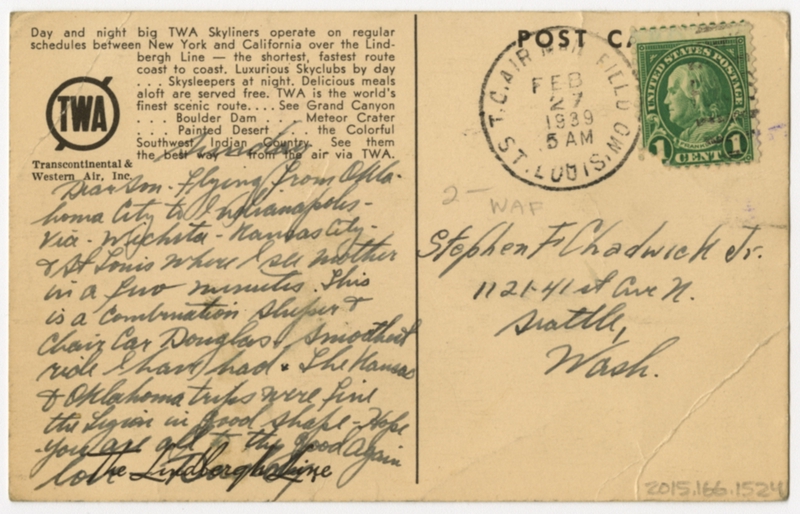 Day and night big TWA Skyliners operate on regular
schedules between New York and California over the Lind-
bergh Line — the shortest, fastest route
coast to coast. Luxurious Skyclubs by day
. . . Skysleepers at night. Delicious meals
aloft are served free. TWA is the world's
finest scenic route. . . . See Grand Canyon
. . . Boulder Dam . . . Meteor Crater
. . . Painted Desert . . . the Colorful
Southwest Indian Country. See them
the best way . . . from the air via TWA.
TWA
Transcontinental &
Western Air, Inc.
Sunday
Dear Son - Flying from Okla-
homa City to Indianapolis -
via - Wichita - Kansas City -
& St Louis where I see mother
in a few minutes. This
is a combination sleeper &
chair car Douglas & smoothest
ride I have had & The Kansas
& Oklahoma trips were fine
the Legion in good shape - Hope
you are all to the good again
love
The Lindbergh Line
POST CA
T.C. AIR MAIL FIELD
FEB
27
1939
5 AM
ST. LOUIS, MO
UNITED STATES POSTAGE
FRANKLIN
1 CENT 1
2 -
WAF
Stephen F Chadwick Jr.
1121-41st Ave N.
Seattle,
Wash.
2015.166.1524